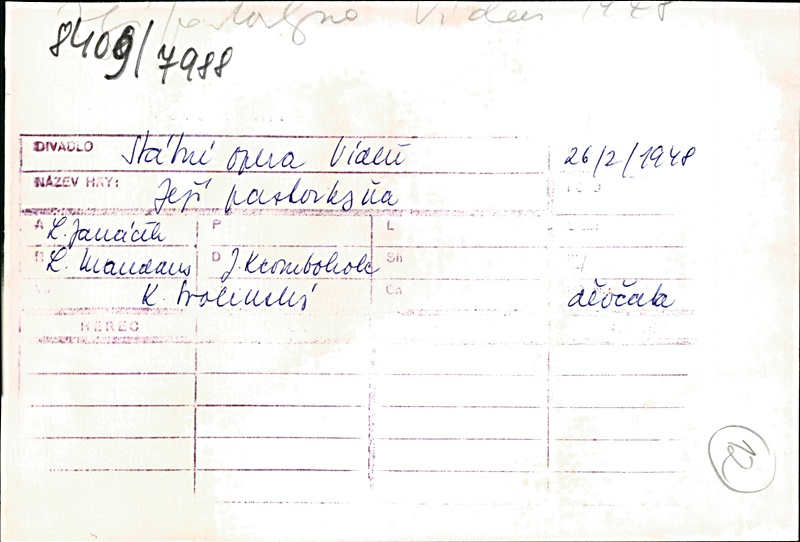 Její pastorkyňa Vídeň 1948
8409/7988
DIVADLO Státní opera Vídeň 26/2/1948
NÁZEV HRY: Její pastorkyňa
A L. Janáček P L
R L. Mandaus D J. Krombholc Sh
K. Svolinský Ch děvčata
HEREC
12